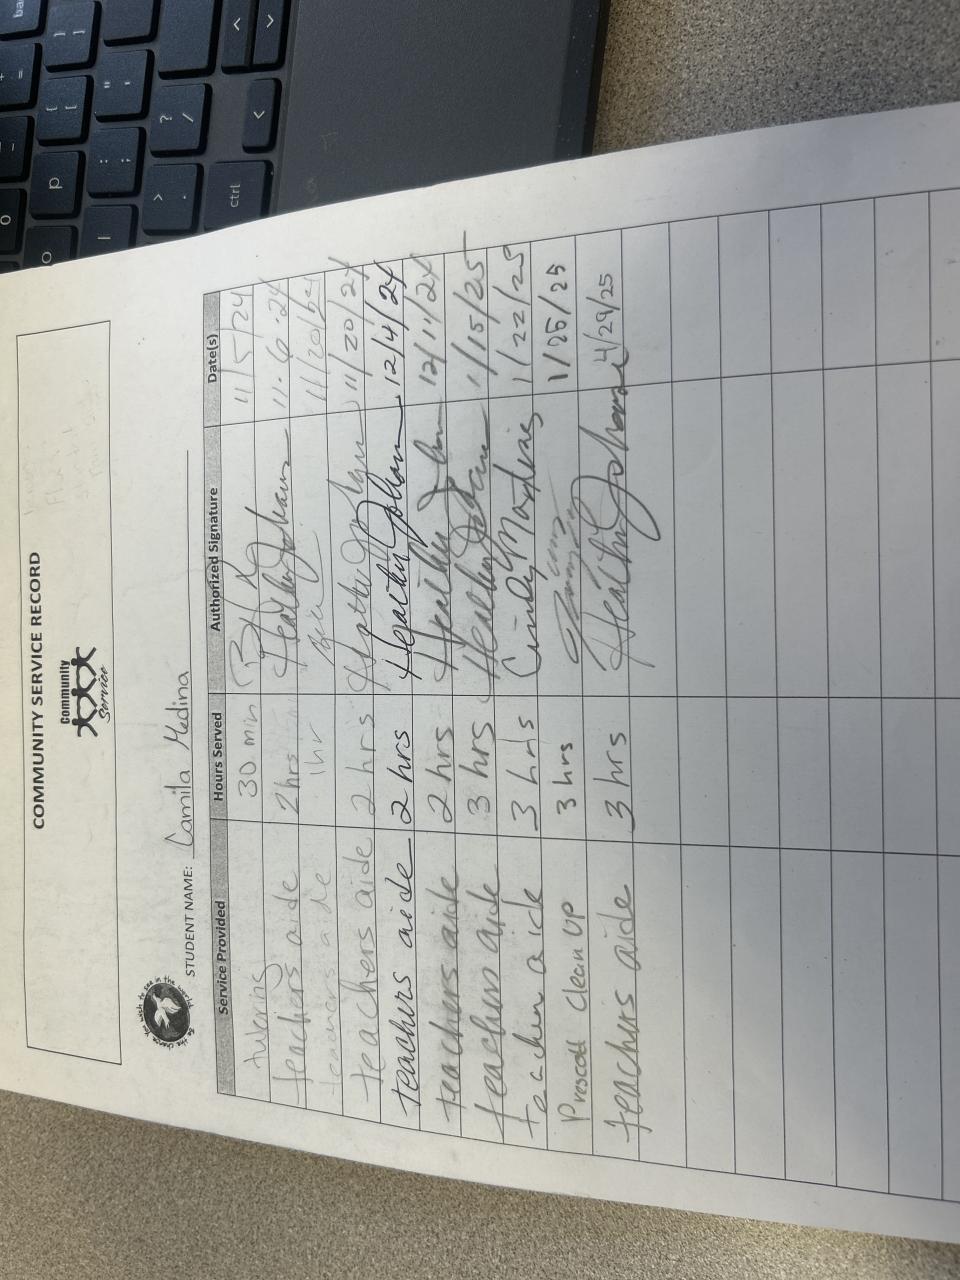 COMMUNITY SERVICE RECORD
Community
Service
Be the change you wish to see in the world
STUDENT NAME: Camila Medina
Service Provided Hours Served Authorized Signature Date(s)
tutoring 30 min 11/5/24
teachers aide 2 hrs Heather Johans 11.6.24
teachers aide 1hr 11/20/24
teachers aide 2 hrs 11/20/24
teachers aide 2 hrs Heather Johan 12/4/24
teachers aide 2 hrs Heather 12/11/24
teachers aide 3 hrs Heather 1/15/25
Teacher aide 3 hrs Cindy 1/22/25
Prescott clean UP 3 hrs 1/25/25
teachers aide 3 hrs Heather 4/29/25
ctrl